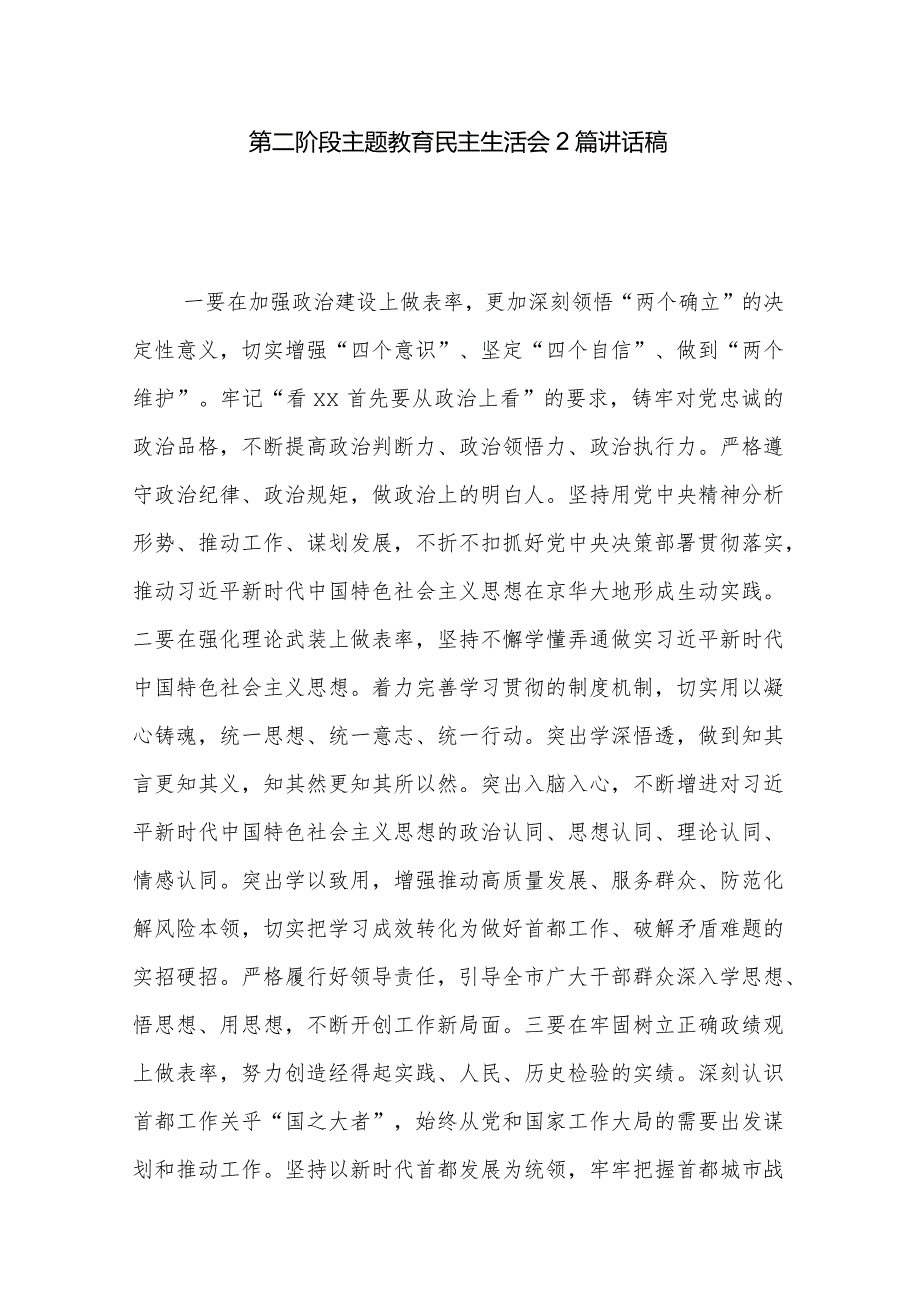 第二阶段主题教育民主生活会2篇讲话稿
一要在加强政治建设上做表率，更加深刻领悟“两个确立”的决
定性意义，切实增强“四个意识”、坚定“四个自信”、做到“两个
维护”。牢记“看xx首先要从政治上看”的要求，铸牢对党忠诚的
政治品格，不断提高政治判断力、政治领悟力、政治执行力。严格遵
守政治纪律、政治规矩，做政治上的明白人。坚持用党中央精神分析
形势、推动工作、谋划发展，不折不扣抓好党中央决策部署贯彻落实，
推动习近平新时代中国特色社会主义思想在京华大地形成生动实践。
二要在强化理论武装上做表率，坚持不懈学懂弄通做实习近平新时代
中国特色社会主义思想。着力完善学习贯彻的制度机制，切实用以凝
心铸魂，统一思想、统一意志、统一行动。突出学深悟透，做到知其
言更知其义，知其然更知其所以然。突出入脑入心，不断增进对习近
平新时代中国特色社会主义思想的政治认同、思想认同、理论认同、
情感认同。突出学以致用，增强推动高质量发展、服务群众、防范化
解风险本领，切实把学习成效转化为做好首都工作、破解矛盾难题的
实招硬招。严格履行好领导责任，引导全市广大干部群众深入学思想、
悟思想、用思想，不断开创工作新局面。三要在牢固树立正确政绩观
上做表率，努力创造经得起实践、人民、历史检验的实绩。深刻认识
首都工作关乎“国之大者”，始终从党和国家工作大局的需要出发谋
划和推动工作。坚持以新时代首都发展为统领，牢牢把握首都城市战